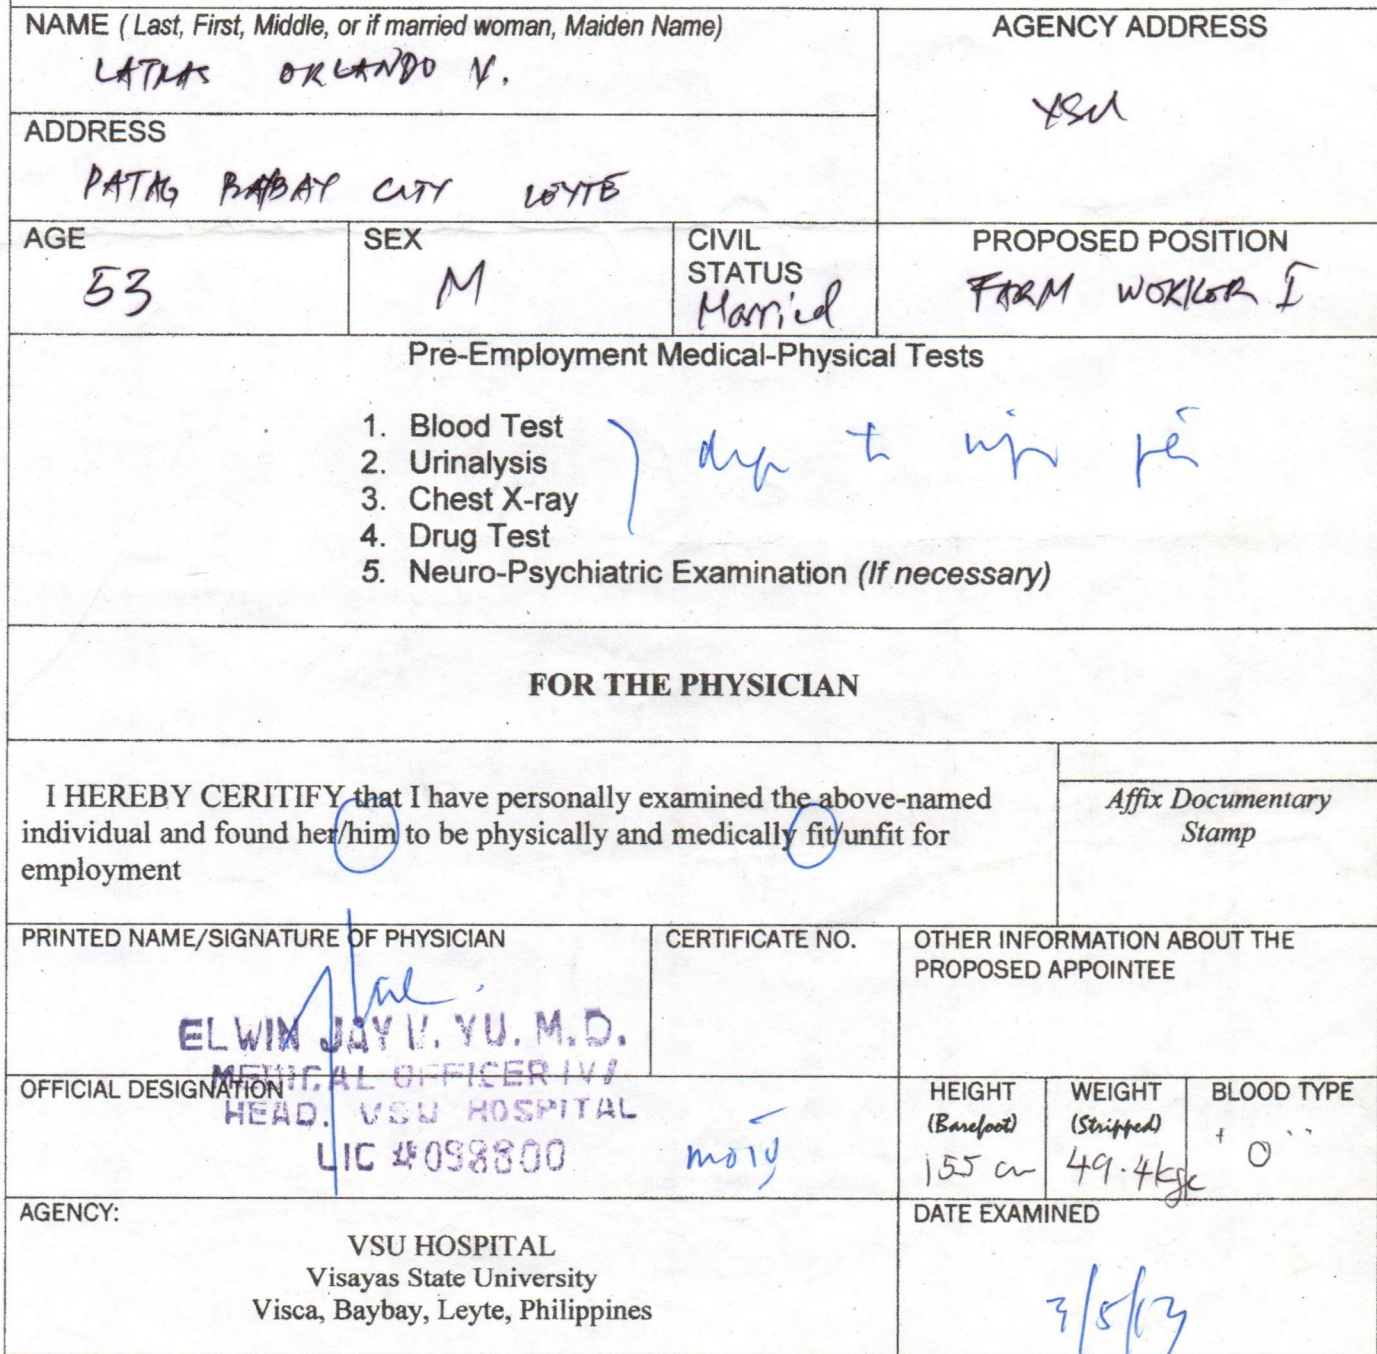 NAME ( Last, First, Middle, or if married woman, Maiden Name)
LATRAS ORLANDO V.
AGENCY ADDRESS
VSU
ADDRESS
PATAG BAYBAY CITY LEYTE
AGE
53
SEX
M
CIVIL
STATUS
Married
PROPOSED POSITION
FARM WORKER I
Pre-Employment Medical-Physical Tests
1. Blood Test
2. Urinalysis
3. Chest X-ray
4. Drug Test
5. Neuro-Psychiatric Examination (If necessary)
FOR THE PHYSICIAN
I HEREBY CERITIFY that I have personally examined the above-named
individual and found her/him to be physically and medically fit/unfit for
employment
Affix Documentary
Stamp
PRINTED NAME/SIGNATURE OF PHYSICIAN
ELWIN JAY V. YU. M.D.
MEDICAL OFFICER IV/
HEAD. VSU HOSPITAL
LIC #098800
CERTIFICATE NO.
OTHER INFORMATION ABOUT THE
PROPOSED APPOINTEE
OFFICIAL DESIGNATION
HEIGHT
(Barefoot)
155 cm
WEIGHT
(Stripped)
49.4kgs
BLOOD TYPE
"O"
AGENCY:
VSU HOSPITAL
Visayas State University
Visca, Baybay, Leyte, Philippines
DATE EXAMINED